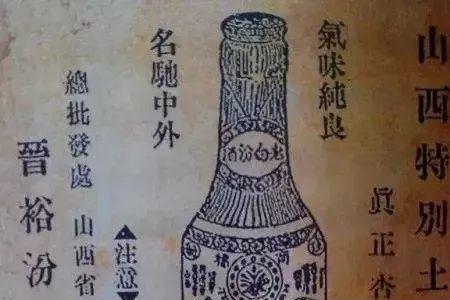 山西特別土
真正杏
氣味純良
老白汾酒
商標
名馳中外
▲注意▲
總批發處 山西省
晉裕汾